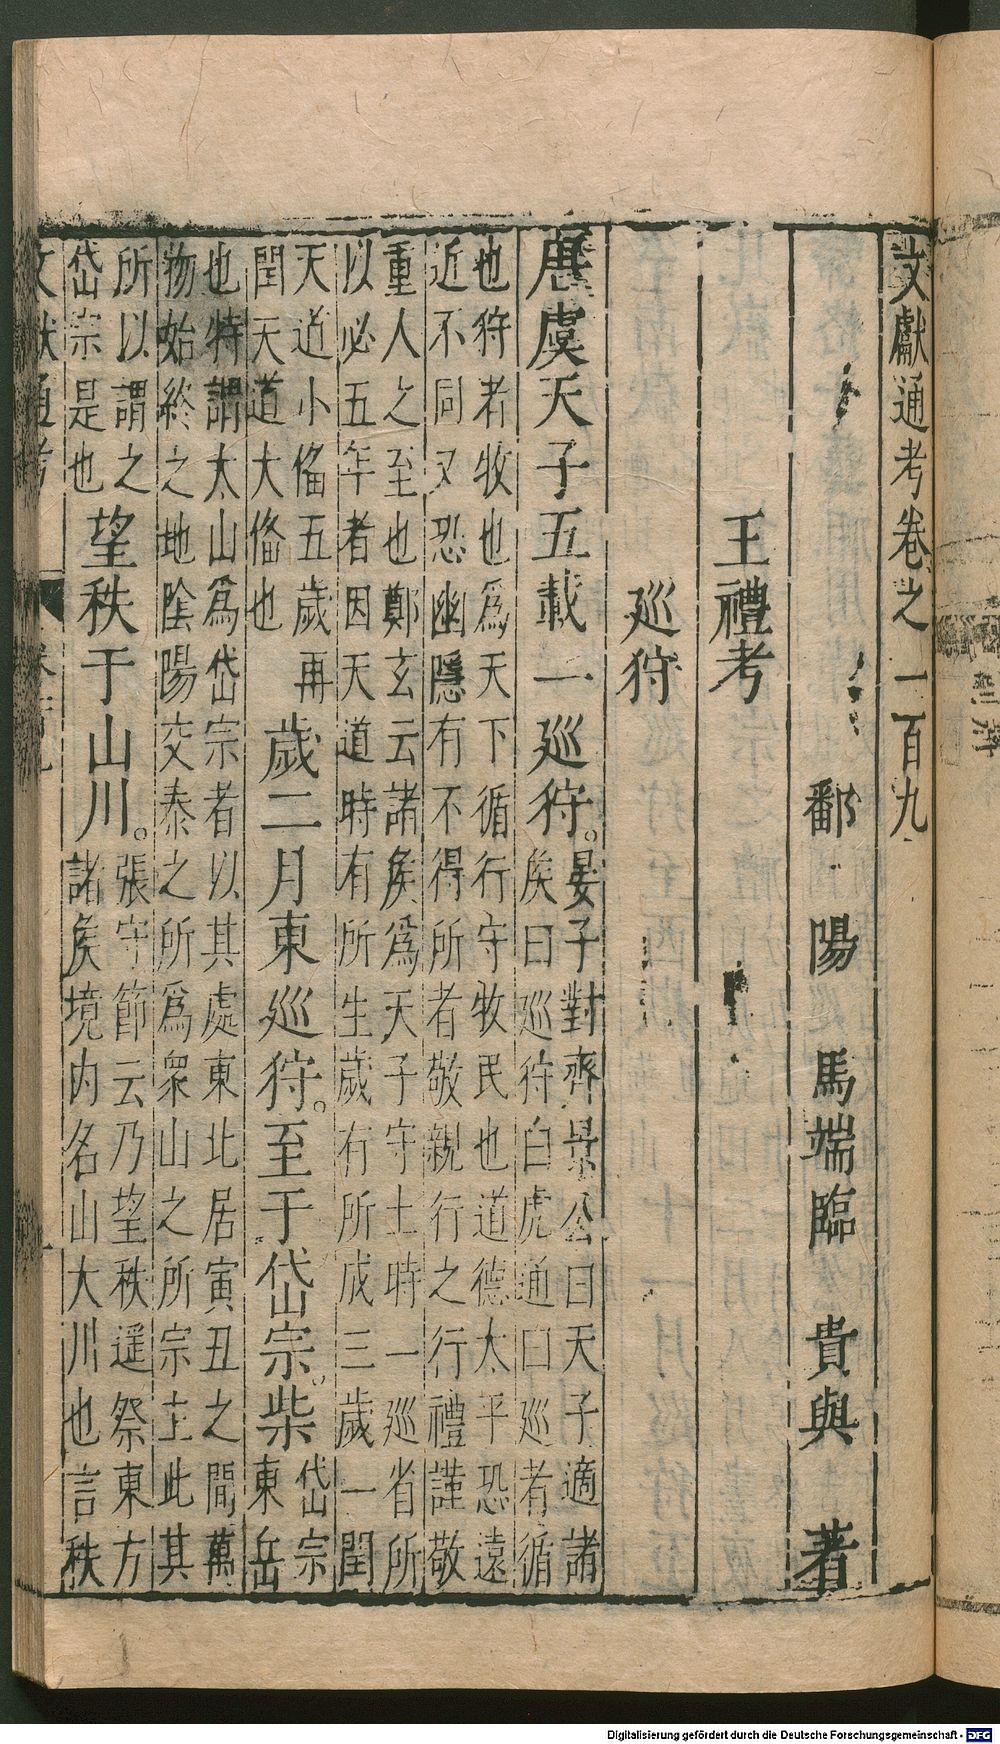 文獻通考卷之一百九
鄱陽馬端臨貴與著
王禮考
巡狩
唐虞天子五載一巡狩。晏子對齊景公曰天子適諸
矦曰巡狩白虎通曰巡者循
也狩者牧也爲天下循行守牧民也道德太平恐遠
近不同又恐幽隱有不得所者敬親行之行禮謹敬
重人之至也鄭玄云諸矦爲天子守土時一巡省所
以必五年者因天道時有所生歲有所成三歲一閏
天道小偹五歲再
閏天道大偹也
歲二月東巡狩。至于岱宗。柴岱宗
東岳
也特謂太山爲岱宗者以其處東北居寅丑之間萬
物始終之地陰陽交泰之所爲衆山之所宗主此其
所以謂之
岱宗是也
望秩于山川。張守節云乃望秩遥祭東方
諸矦境内名山大川也言秩
文獻通考
Digitalisierung gefördert durch die Deutsche Forschungsgemeinschaft - DFG